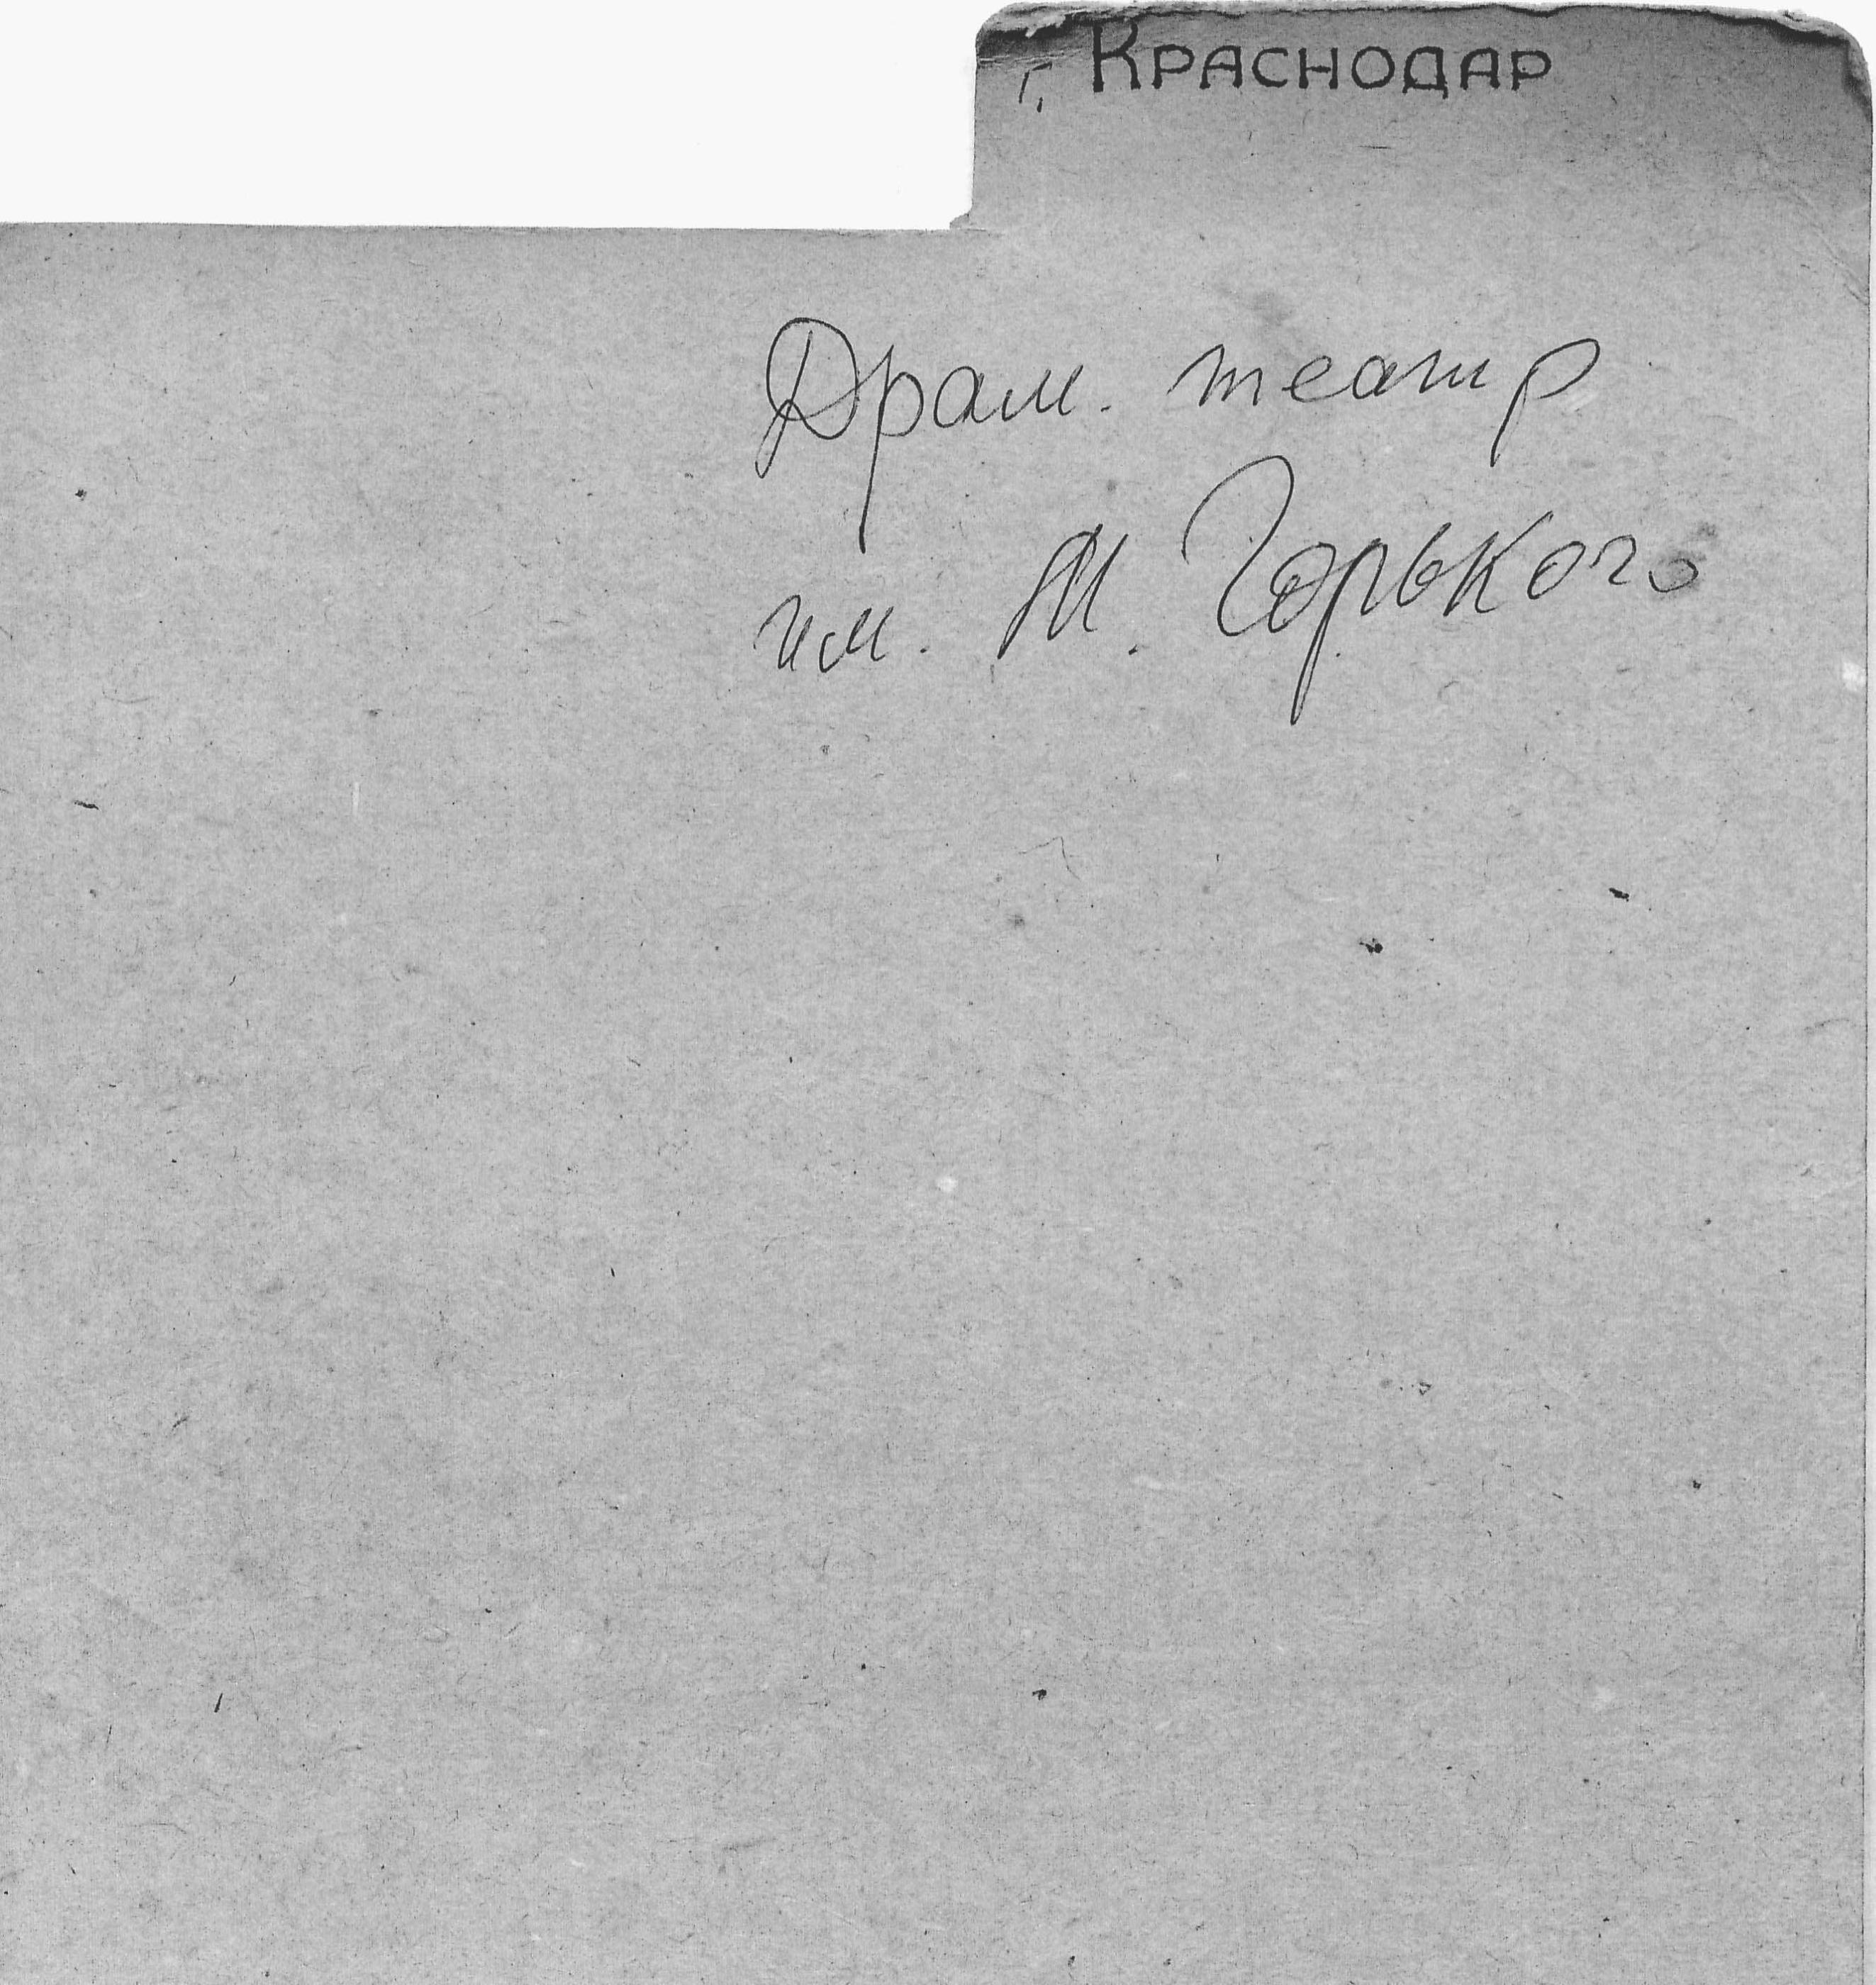 г. Краснодар
Драм. театр
им. М. Горького